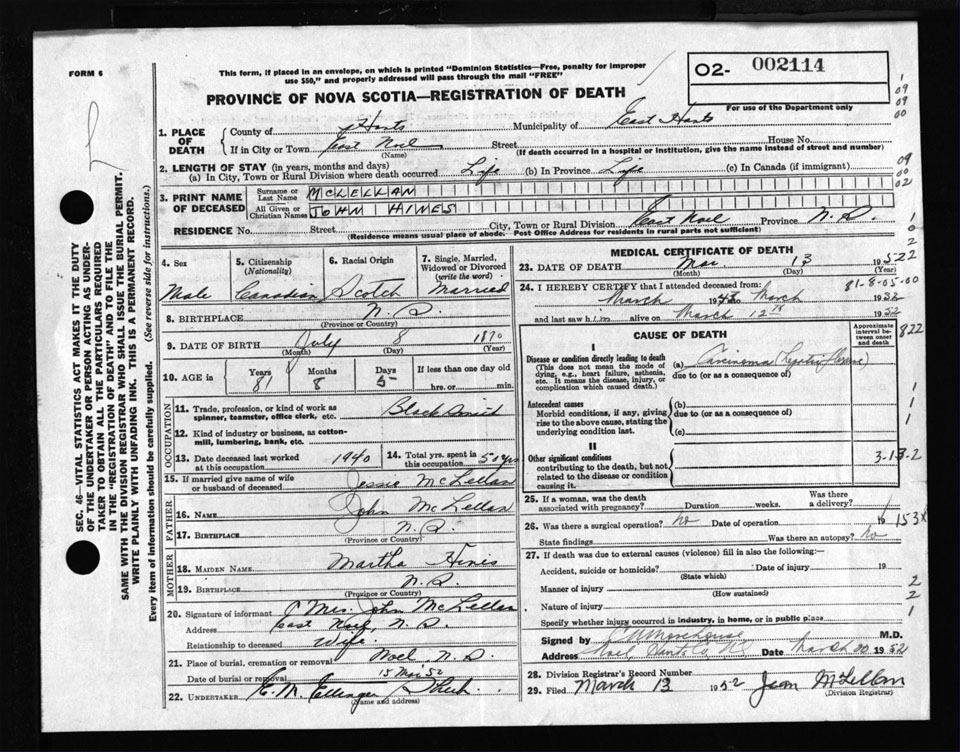 FORM 6
This form, if placed in an envelope, on which is printed "Dominion Statistics—Free, penalty for improper
use $50," and properly addressed will pass through the mail "FREE"
O2- 002114
PROVINCE OF NOVA SCOTIA—REGISTRATION OF DEATH
For use of the Department only
1. PLACE OF DEATH
County of Hants Municipality of East Hants
If in City or Town East Noel Street House No.
(Name) (If death occurred in a hospital or institution, give the name instead of street and number)
2. LENGTH OF STAY (in years, months and days)
(a) In City, Town or Rural Division where death occurred Life (b) In Province Life (c) In Canada (if immigrant)
3. PRINT NAME OF DECEASED
Surname or Last Name MCLELLAN
All Given or Christian Names JOHN HINES
RESIDENCE No. Street City, Town or Rural Division East Noel Province N.S.
(Residence means usual place of abode. Post Office Address for residents in rural parts not sufficient)
4. Sex Male
5. Citizenship (Nationality) Canadian
6. Racial Origin Scotch
7. Single, Married, Widowed or Divorced (write the word) Married
8. BIRTHPLACE N.S.
(Province or Country)
9. DATE OF BIRTH July 8 1870
(Month) (Day) (Year)
10. AGE in Years 81 Months 8 Days 5 If less than one day old
hrs. or min.
OCCUPATION
11. Trade, profession, or kind of work as spinner, teamster, office clerk, etc. Blacksmith
12. Kind of industry or business, as cotton-mill, lumbering, bank, etc.
13. Date deceased last worked at this occupation 1940
14. Total yrs. spent in this occupation 50 yrs
15. If married give name of wife or husband of deceased Jessie McLellan
FATHER
16. NAME John McLellan
17. BIRTHPLACE N.S.
(Province or Country)
MOTHER
18. MAIDEN NAME Martha Hines
19. BIRTHPLACE N.S.
(Province or Country)
20. Signature of informant Mrs. John McLellan
Address East Noel, N.S.
Relationship to deceased Wife
21. Place of burial, cremation or removal Noel N.S.
Date of burial or removal 15 Mar 52
22. UNDERTAKER E. M. Ettinger
(Name and address)
MEDICAL CERTIFICATE OF DEATH
23. DATE OF DEATH Mar. 13 1952
(Month) (Day) (Year)
24. I HEREBY CERTIFY that I attended deceased from:
81-8-05-00
March 19 to March 1952
and last saw him alive on March 12th 1952
CAUSE OF DEATH
Approximate interval between onset and death
822
I
Disease or condition directly leading to death
(This does not mean the mode of dying, e.g., heart failure, asthenia, etc. It means the disease, injury, or complication which caused death.)
(a) Carcinoma
due to (or as a consequence of)
Antecedent causes
Morbid conditions, if any, giving rise to the above cause, stating the underlying condition last.
(b)
due to (or as a consequence of)
(c)
II
Other significant conditions
contributing to the death, but not related to the disease or condition causing it.
25. If a woman, was the death associated with pregnancy? Duration weeks. Was there a delivery?
26. Was there a surgical operation? No Date of operation 19
State findings Was there an autopsy? No
27. If death was due to external causes (violence) fill in also the following:—
Accident, suicide or homicide? Date of injury 19
(State which)
Manner of injury
(How sustained)
Nature of injury
Specify whether injury occurred in industry, in home, or in public place
Signed by Morehouse M.D.
Address Noel, Hants Co, NS Date March 20 1952
28. Division Registrar's Record Number
29. Filed March 13 1952 Jean McLellan
(Division Registrar)
SEC. 46—VITAL STATISTICS ACT MAKES IT THE DUTY
OF THE UNDERTAKER OR PERSON ACTING AS UNDER-
TAKER TO OBTAIN ALL THE PARTICULARS REQUIRED
IN THE "REGISTRATION OF DEATH" AND TO FILE THE
SAME WITH THE DIVISION REGISTRAR WHO SHALL ISSUE THE BURIAL PERMIT.
WRITE PLAINLY WITH UNFADING INK. THIS IS A PERMANENT RECORD.
Every item of information should be carefully supplied. (See reverse side for instructions.)